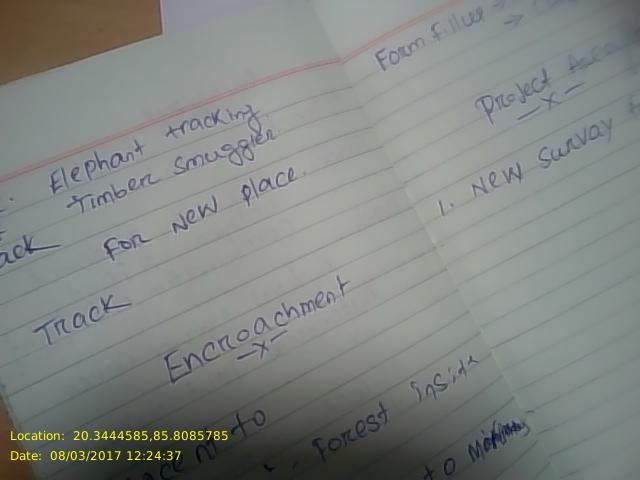 Elephant tracking
Timber smuggler
ack For New place.
Track
Encroachment
-x-
to
Forest inside
to
Form filler
Project
-x-
1. New survay
Location: 20.3444585,85.8085785
Date: 08/03/2017 12:24:37